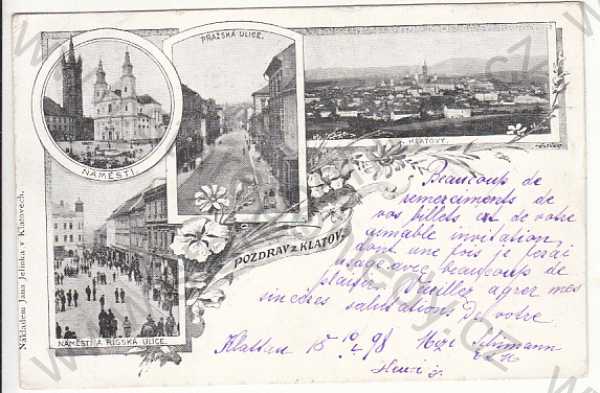 PRAŽSKÁ ULICE.
NÁMĚSTÍ
KLATOVY.
POZDRAV z KLATOV.
NÁMĚSTÍ A ŘÍŠSKÁ ULICE.
Nákladem Jana Jelínka v Klatovech.
Beaucoup de
remerciments de
vos billets et de votre
aimable invitation,
dont une fois je ferai
usage avec beaucoup de
plaisir. Veuillez agrer mes
sinceres salutations de votre
Klattau 15 10/4 98
Schumann